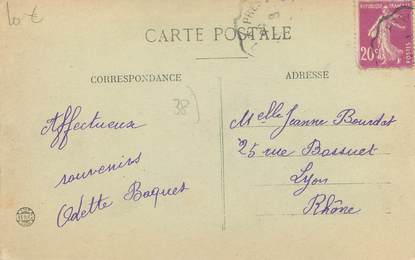 10 €
CARTE POSTALE
REPUBLIQUE FRANÇAISE
20c
POSTES
CORRESPONDANCE
ADRESSE
38
Affectueux
souvenirs
Odette Baques
Melle Jeanne Bourdat
25 rue Bossuet
Lyon
Rhône